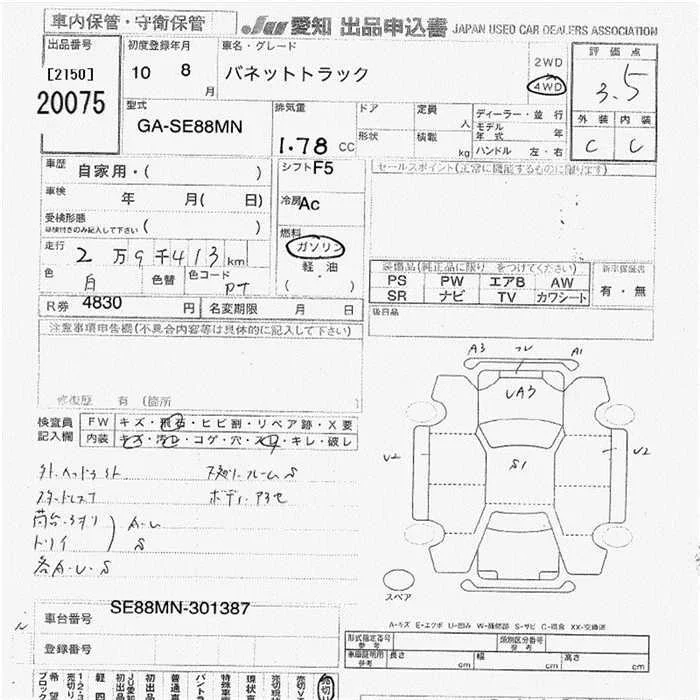 車内保管・守衛保管
JU 愛知 出品申込書 JAPAN USED CAR DEALERS ASSOCIATION
出品番号
[2150]
20075
初度登録年月
10 8 月
車名・グレード
バネットトラック
2WD
4WD
評価点
3.5
外装 内装
C C
型式
GA-SE88MN
排気量
1.78 CC
ドア
形状
定員 人
積載 kg
ディーラー・並行
モデル年式 年
ハンドル 左・右
車歴 自家用・( )
車検 年 月( 日)
受検形態
車検付きのみ記入して下さい ( )
走行 2万9千413km
色 白 色替 色コード PT
シフト F5
冷房 AC
燃料
ガソリン
軽油
( )
セールスポイント(正常に機能するものに限ります)
装備品(純正品に限り をつけてください)
PS PW エアB AW
SR ナビ TV カワシート
新車保証書
有・無
後日品
R券 4830 円 名変期限 月 日
注意事項申告欄(不具合内容等は具体的に記入して下さい)
修復歴 有 (箇所
検査員
記入欄
FW キズ・飛石・ヒビ割・リペア跡・X要
内装 キズ・汚レ・コゲ・穴・スレ・キレ・破レ
A3 フレ A1
UA3
U2 S1 U2
スペア
ボディ
荷台
A・U
S
各A・U・S
A-キズ E-エクボ U-凹み W-補修跡 S-サビ C-腐食 XX-交換済
車台番号 SE88MN-301387
登録番号
型式指定番号 参考
類別区分番号 参考
車庫証明用 参考 長さ cm 幅 cm 高さ cm